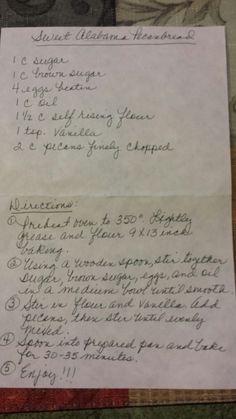 Sweet Alabama Pecanbread
1 c sugar
1 c brown sugar
4 eggs beaten
1 c oil
1 1/2 c self rising flour
1 tsp. vanilla
2 c pecans finely chopped
Directions:
① Preheat oven to 350°. Lightly
grease and flour 9x13 inch
baking.
② Using a wooden spoon, stir together
sugar, brown sugar, eggs, and oil
in a medium bowl until smooth
③ Stir in flour and vanilla add
pecans, then stir until evenly
mixed.
④ Spoon into prepared pan and bake
for 30-35 minutes.
⑤ Enjoy!!!